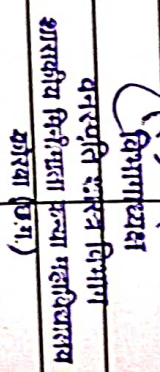 विभागाध्यक्ष
वनस्पति शास्त्र विभाग
शासकीय मिनीमाता कन्या महाविद्यालय
कोरबा (छ.ग.)